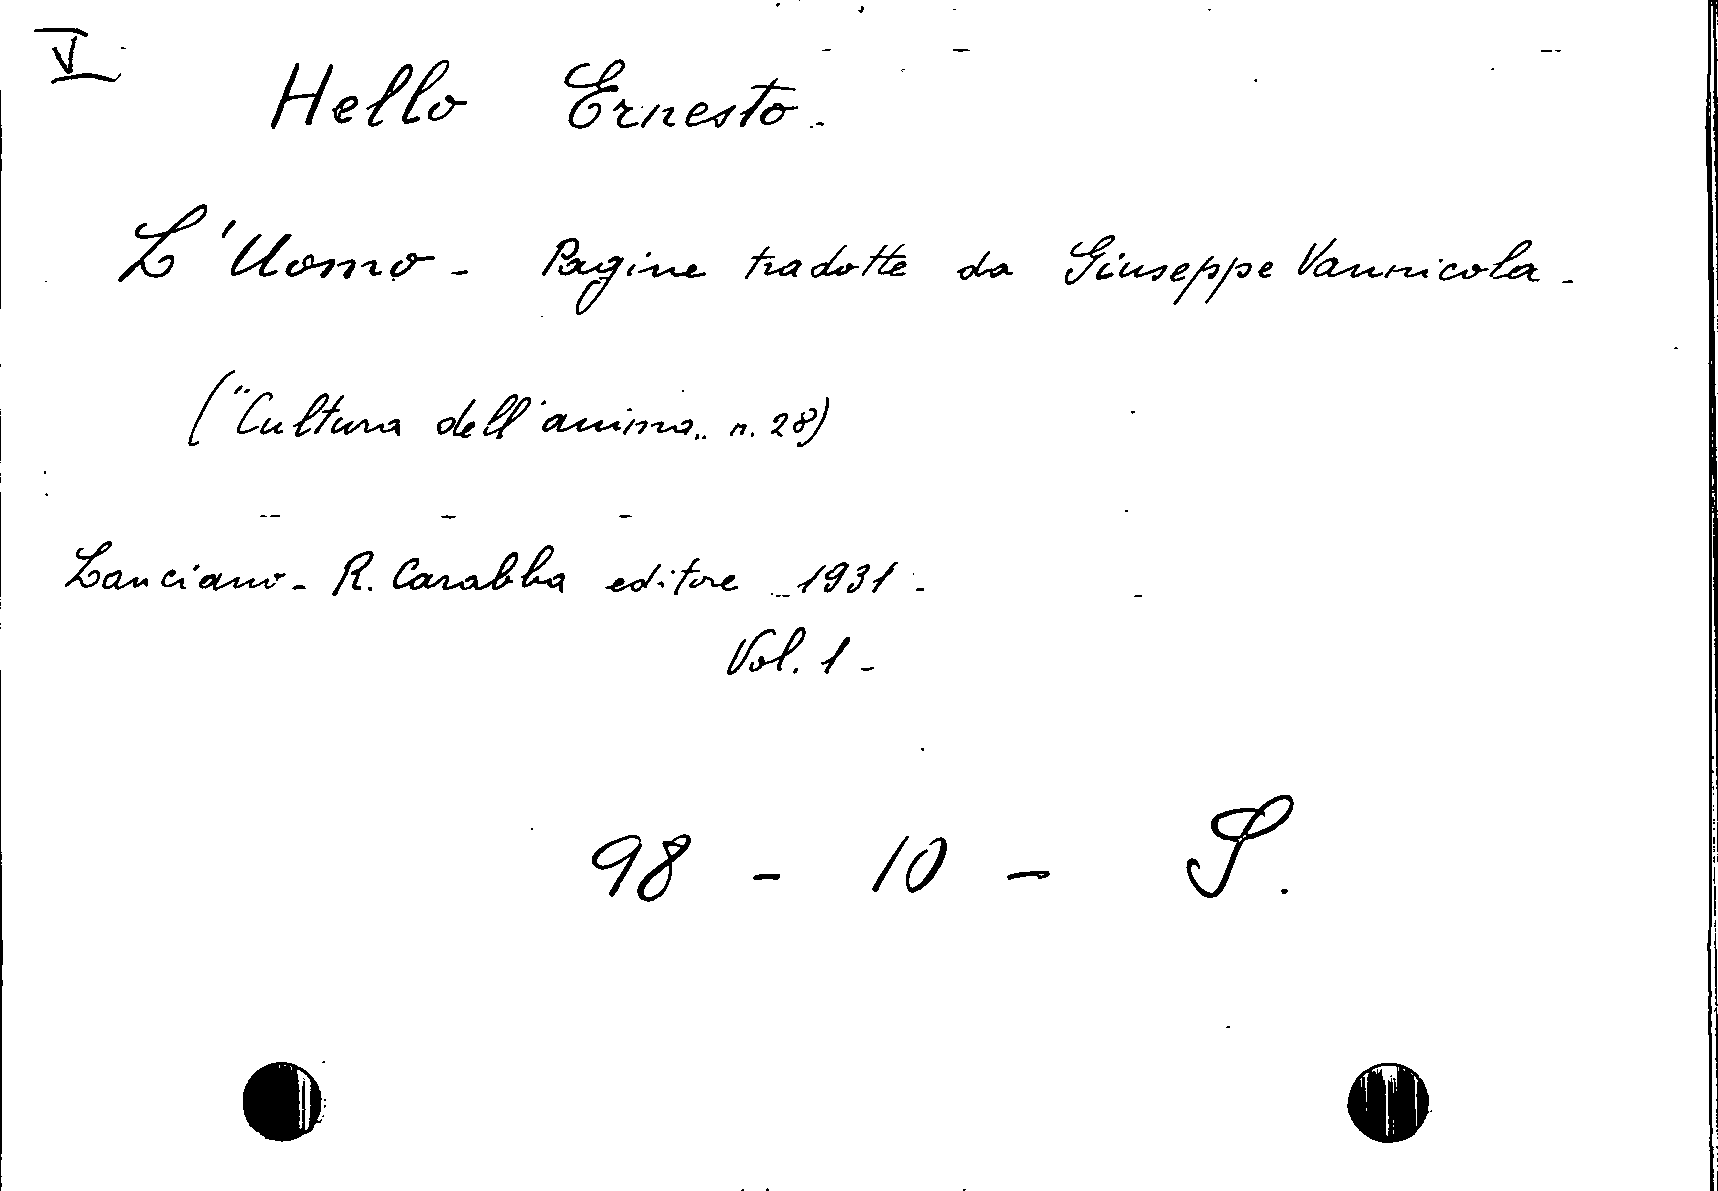 V
Hello Ernesto.
L'Uomo - Pagine tradotte da Giuseppe Vannicola -
("Cultura dell'anima" n. 28)
Lanciano - R. Carabba editore - 1931 -
Vol. 1 -
98 - 10 - S.